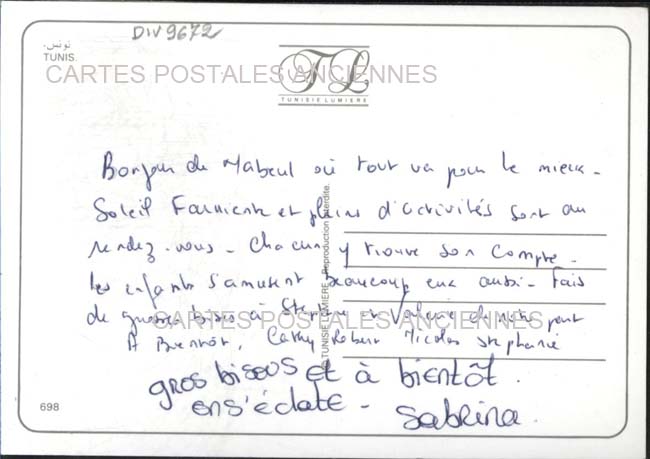 DIV9672
تونس.
TUNIS.
CARTES POSTALES ANCIENNES
TL
TUNISIE LUMIERE
Bonjour de Nabeul où tout va pour le mieux -
Soleil Farniente et pleins d'activités sont au
rendez-vous - Chacun y trouve son compte -
les enfants s'amusent beaucoup eux aussi - Fais
de grosses bises à Stephane et Valerie de notre part
A Bientôt, Cathy Robert Nicolas Stephanie
CARTES POSTALES ANCIENNES
gros bisous et à bientôt.
on s'éclate - Sabrina.
© TUNISIE LUMIERE - Reproduction interdite.
698